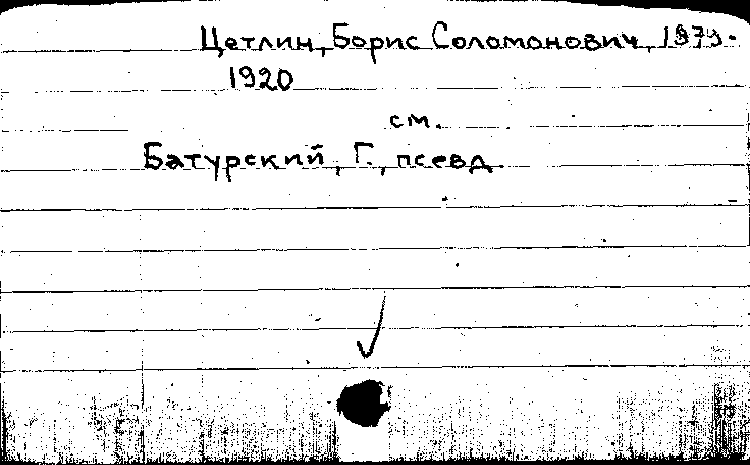 Цетлин, Борис Соломонович, 1879-
1920
см.
Батурский, Г., псевд.